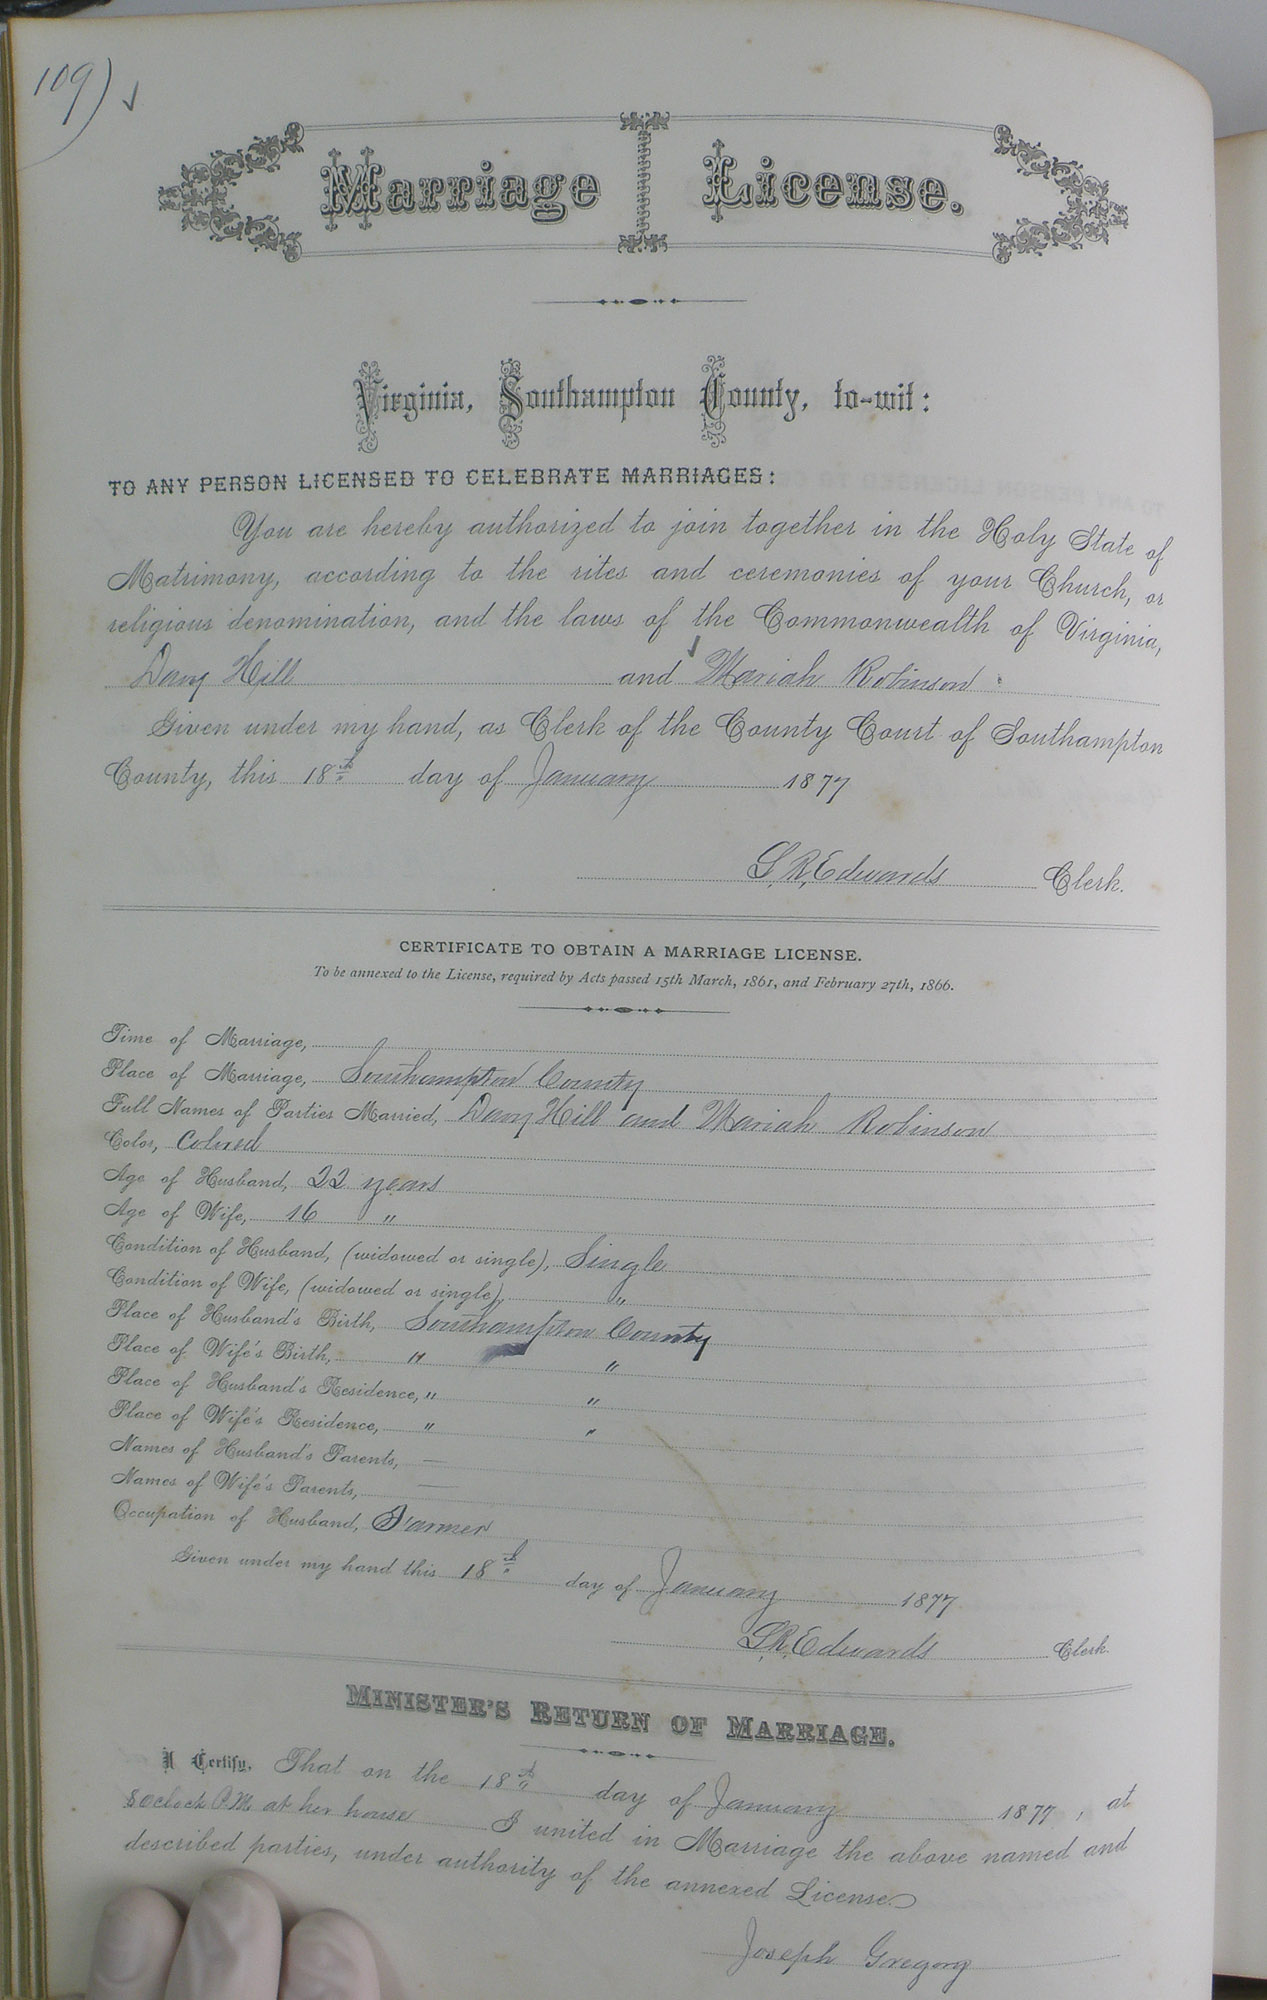 109)
Marriage License.
Virginia, Southampton County, to-wit:
TO ANY PERSON LICENSED TO CELEBRATE MARRIAGES:
You are hereby authorized to join together in the Holy State of
Matrimony, according to the rites and ceremonies of your Church, or
religious denomination, and the laws of the Commonwealth of Virginia,
Davy Hill and Mariah Robinson
Given under my hand, as Clerk of the County Court of Southampton
County, this 18th day of January 1877
L. R. Edwards Clerk.
CERTIFICATE TO OBTAIN A MARRIAGE LICENSE.
To be annexed to the License, required by Acts passed 15th March, 1861, and February 27th, 1866.
Time of Marriage,
Place of Marriage, Southampton County
Full Names of Parties Married, Davy Hill and Mariah Robinson
Color, Colored
Age of Husband, 22 years
Age of Wife, 16 "
Condition of Husband, (widowed or single), Single
Condition of Wife, (widowed or single), "
Place of Husband's Birth, Southampton County
Place of Wife's Birth, " "
Place of Husband's Residence, " "
Place of Wife's Residence, " "
Names of Husband's Parents, —
Names of Wife's Parents, —
Occupation of Husband, Farmer
Given under my hand this 18th day of January 1877
L. R. Edwards Clerk.
MINISTER'S RETURN OF MARRIAGE.
I Certify, That on the 18th day of January 1877, at
8 oclock P.M. at her house I united in Marriage the above named and
described parties, under authority of the annexed License.
Joseph Gregory